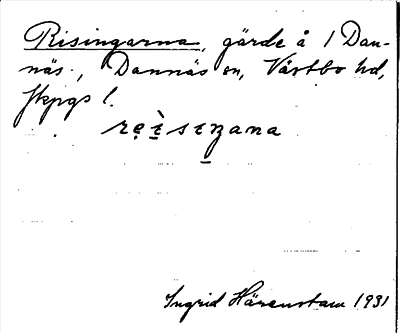 Risingarna, gärde å 1 Dan-
näs, Dannäs sn, Västbo hd,
Jkpgs l.
Ingrid Härenstam 1931